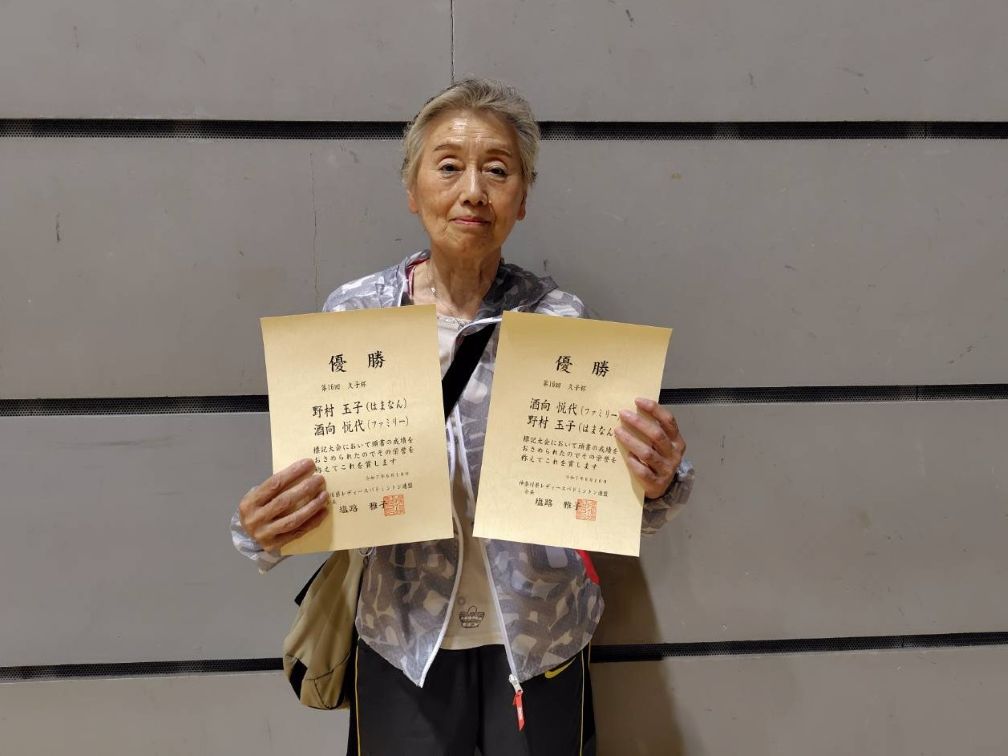 優勝
第16回 久子杯
野村 玉子(はまなん)
酒向 悦代(ファミリー)
標記大会において頭書の成績を
おさめられたのでその栄誉を
称えてこれを賞します
県レディースバドミントン連盟
塩路 雅子
優勝
第16回 久子杯
酒向 悦代(ファミリー
野村 玉子(はまなん
標記大会において頭書の成績を
おさめられたのでその栄誉を
称えてこれを賞します
神奈川県レディースバドミントン連盟
会長
塩路 雅子